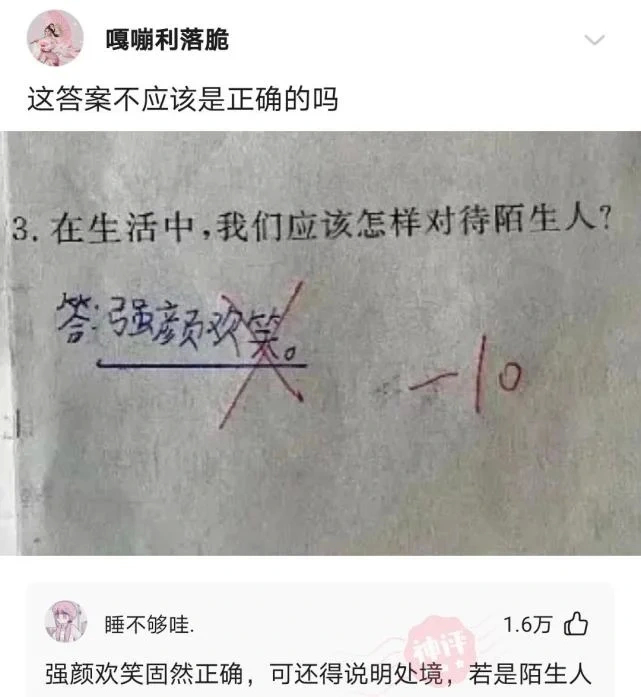 嘎嘣利落脆
这答案不应该是正确的吗
3. 在生活中,我们应该怎样对待陌生人?
答:强颜欢笑。
-10
睡不够哇.
1.6万
神评
强颜欢笑固然正确，可还得说明处境，若是陌生人